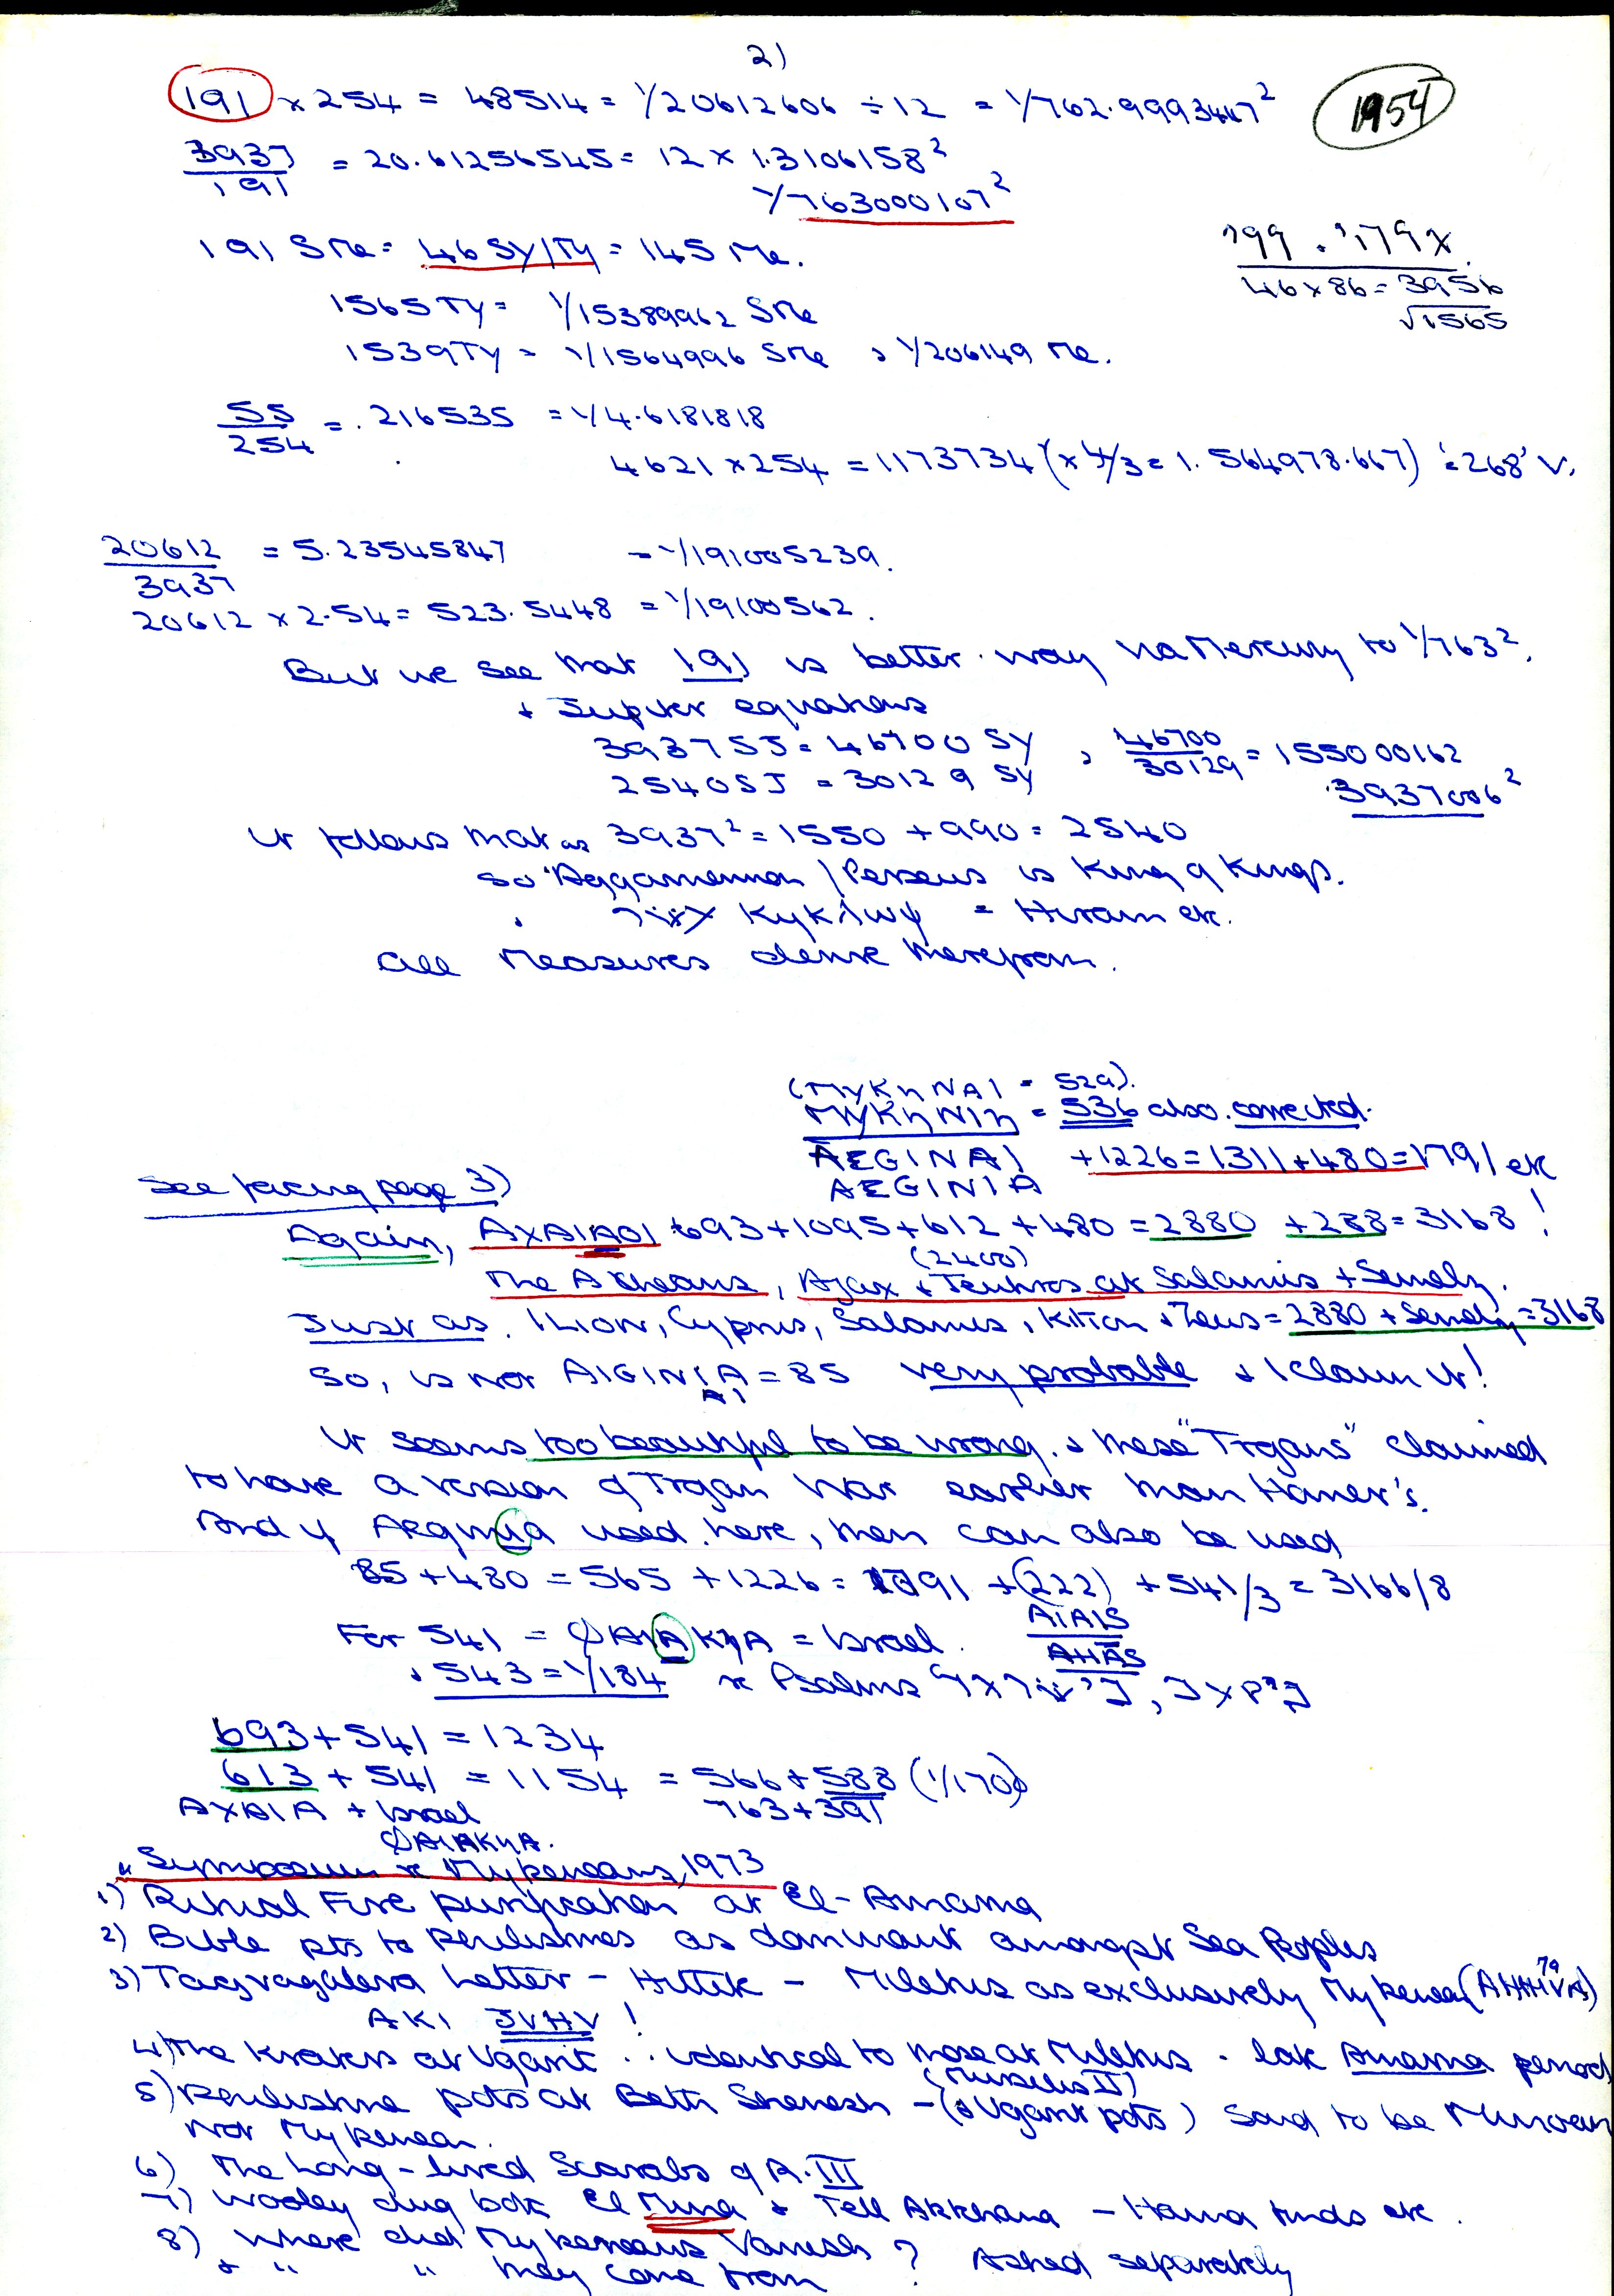 2)
191 × 254 = 48514 = 1/20612606 ÷ 12 = 1/762.9993447²
1954
3937/191 = 20.61256545 = 12 × 1.3106158²
1/763000107²
191 SMe = 46 SY/TY = 145 Me.
199 . 179X
46×86 = 3956
√1565
1565TY = 1/15389962 SMe
1539TY = 1/1564996 SMe , 1/206149 Me.
55/254 = .216535 = 1/4.6181818
4621 × 254 = 1173734 (× 4/3 = 1.564978.667) '=268' V.
20612/3937 = 5.23545847 = 1/191005239.
20612 × 2.54 = 523.5448 = 1/19100562.
But we see that 191 is better way via Mercury to 1/763².
+ Jupiter equations
3937SJ = 46700 SY , 46700/30129 = 155000162
2540SJ = 30129 SY .3937006²
It follows that as 3937² = 1550 + 990 = 2540
so 'Aggamemnon / Perseus is King of Kings.
KyKλwψ = Hiram etc.
All Measures derive therefrom.
(MyKηNAI = 529).
MyKηNIη = 536 also corrected.
AEGINAI +1226 = 1311 + 480 = 1791 etc
See facing page 3) AEGINIA
Again, AXAIAOI 693 + 1095 + 612 + 480 = 2880 + 288 = 3168 !
(2400)
The Akheans, Ajax + Teukros at Salamis + Semely.
Just as. Ilion, Cyprus, Salamis, Kition + Zeus = 2880 + Semely = 3168
So, is not AIGINIA = 85 very probable + I claim it!
AI
It seems too beautiful to be wrong. + these "Trojans" claimed
to have a version of Trojan War earlier than Homer's.
And if Aeginia used here, then can also be used
85 + 480 = 565 + 1226 = 1791 + (222) + 541/3 = 3166/8
AIAIS
For 541 = φAIAKηA = Israel. AHAS
+ 543 = 1/184 re Psalms
693 + 541 = 1234
613 + 541 = 1154 = 566 + 588 (1/1700)
AXAIA + Israel 763 + 391
φAIAKηA.
"Symposium re Mykeneans, 1973
1) Ritual Fire purification at El-Amarna
2) Bible pts to Peulistines as dominant amongst Sea Peoples
3) Tagvagalava Letter - Hittite - Miletus as exclusively Mykenean (AHHIVA) 79
AKI JVHV !
4) The Kraters at Ugarit .. identical to those at Miletus - late Amarna period
(Mursilis II)
5) Peulistine pots at Beth Shemesh - (+ Ugarit pots) said to be Minoan
not Mykenean.
6) The Long-lived Scarabs of A. III
7) Wooley dug both El Mina + Tell Atkhana - Hama finds etc.
8) Where did Mykeneans Vanish ? Asked separately
+ " " they come from